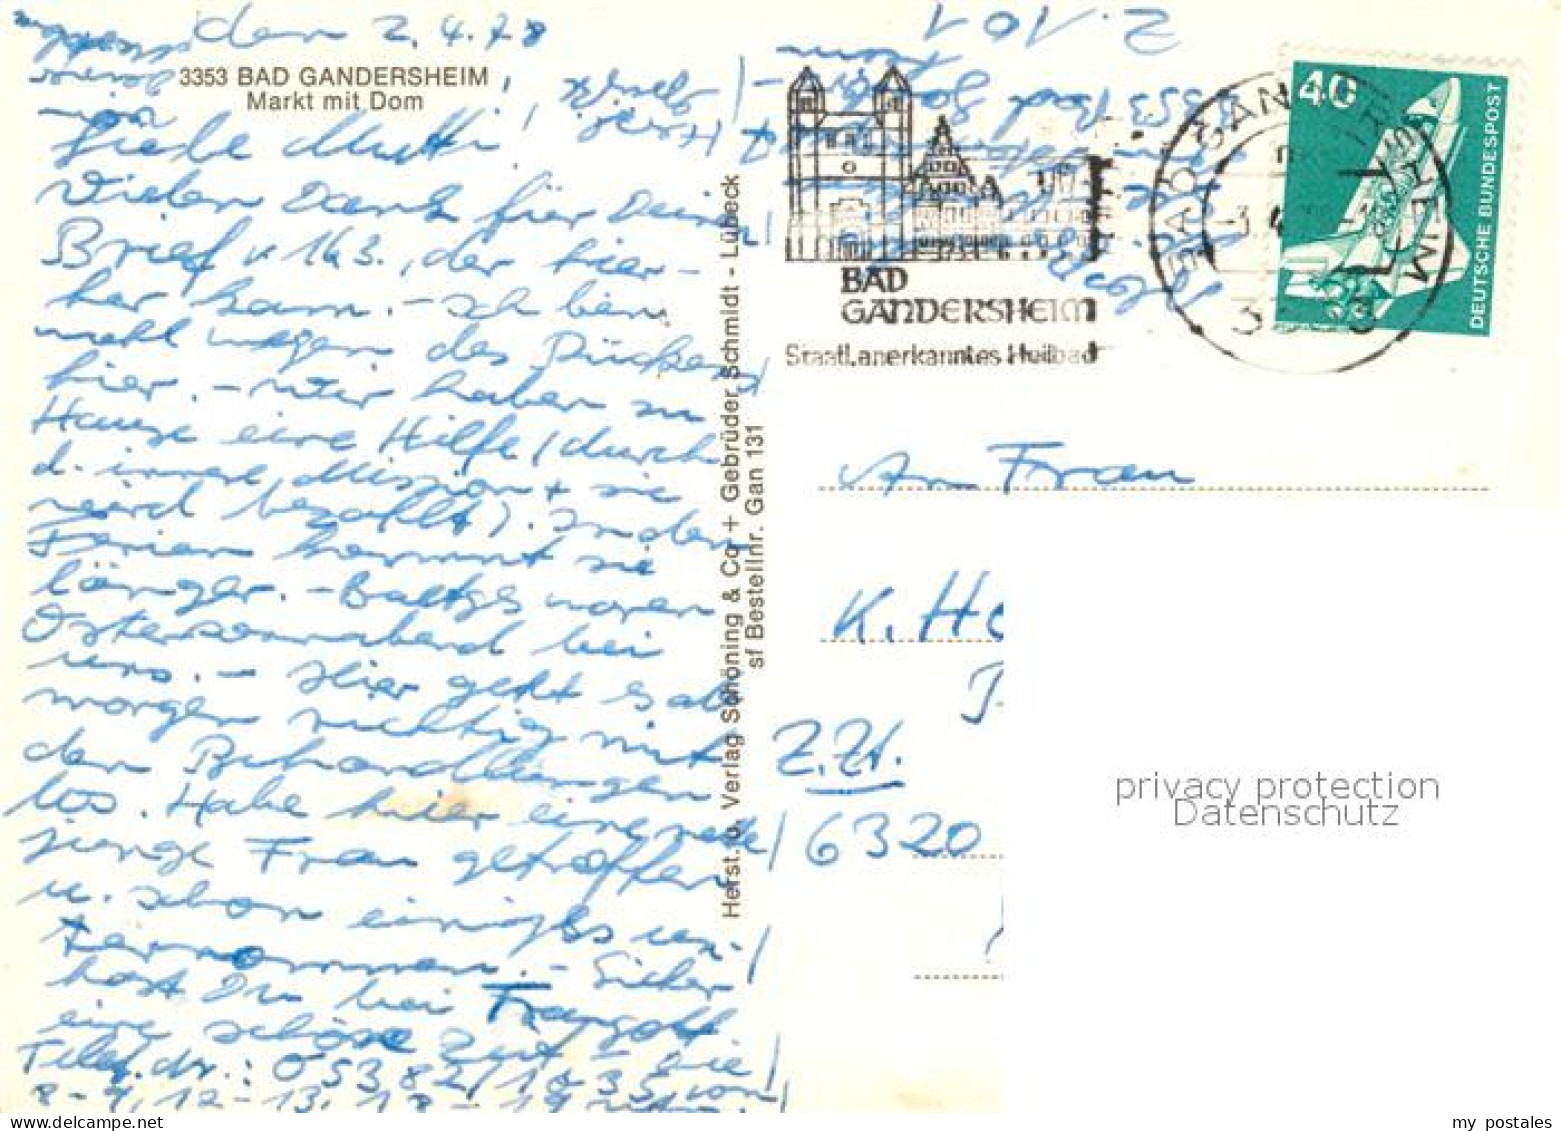 den 2.4.78
3353 BAD GANDERSHEIM
Markt mit Dom
Liebe Mutti,
Vielen Dank für Deinen
Brief v. 16.3., der hier-
her kam. - Ich bin
wegen des Rückens
hier. - Wir haben zu
Hause eine Hilfe (durch
d. innere Mission + sie
wird bezahlt). In den
Ferien kommt sie
länger. - waren
Ostersonnabend bei
uns. - Hier geht es ab
morgen richtig mit
den Behandlungen
los. Habe hier eine nette
junge Frau getroffen
u. schon einiges un-
ternommen. - Sicher
hast Du bei
eine schöne Zeit - Die
Telef.Nr.: 05382/1835 von
8-9, 12-13, 18-19
Herst. u. Verlag Schöning & Co + Gebrüder Schmidt - Lübeck
sf Bestellnr. Gan 131
BAD
GANDERSHEIM
Staatl. anerkanntes Heilbad
BAD GANDERSHEIM
3353
40
DEUTSCHE BUNDESPOST
An Frau
K. H
z.Zt.
6320
privacy protection
Datenschutz
my postales